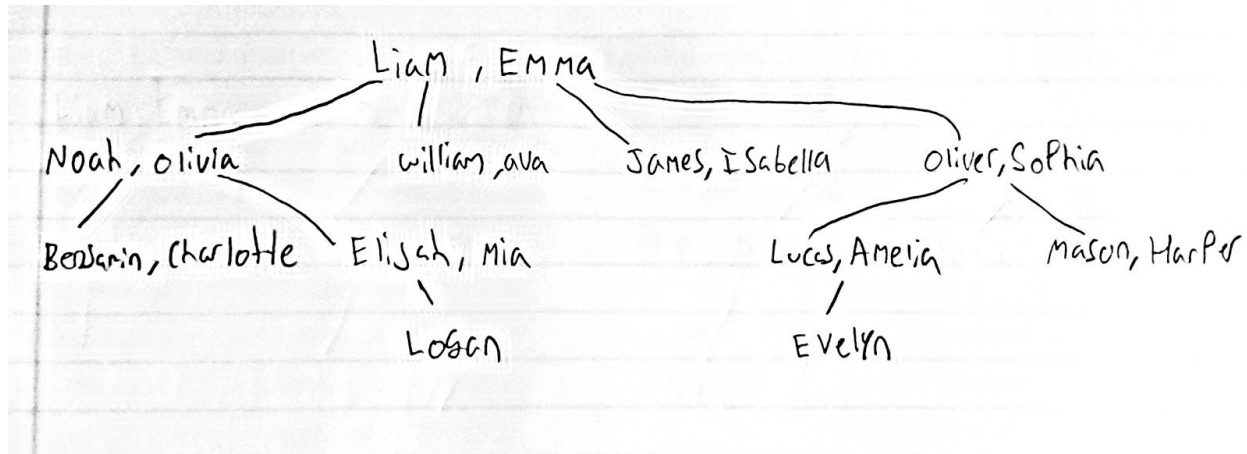 Liam , Emma
Noah , olivia william , ava James, Isabella oliver, Sophia
Benjamin, Charlotte Elijah, Mia Lucas, Amelia Mason, Harper
Logan Evelyn